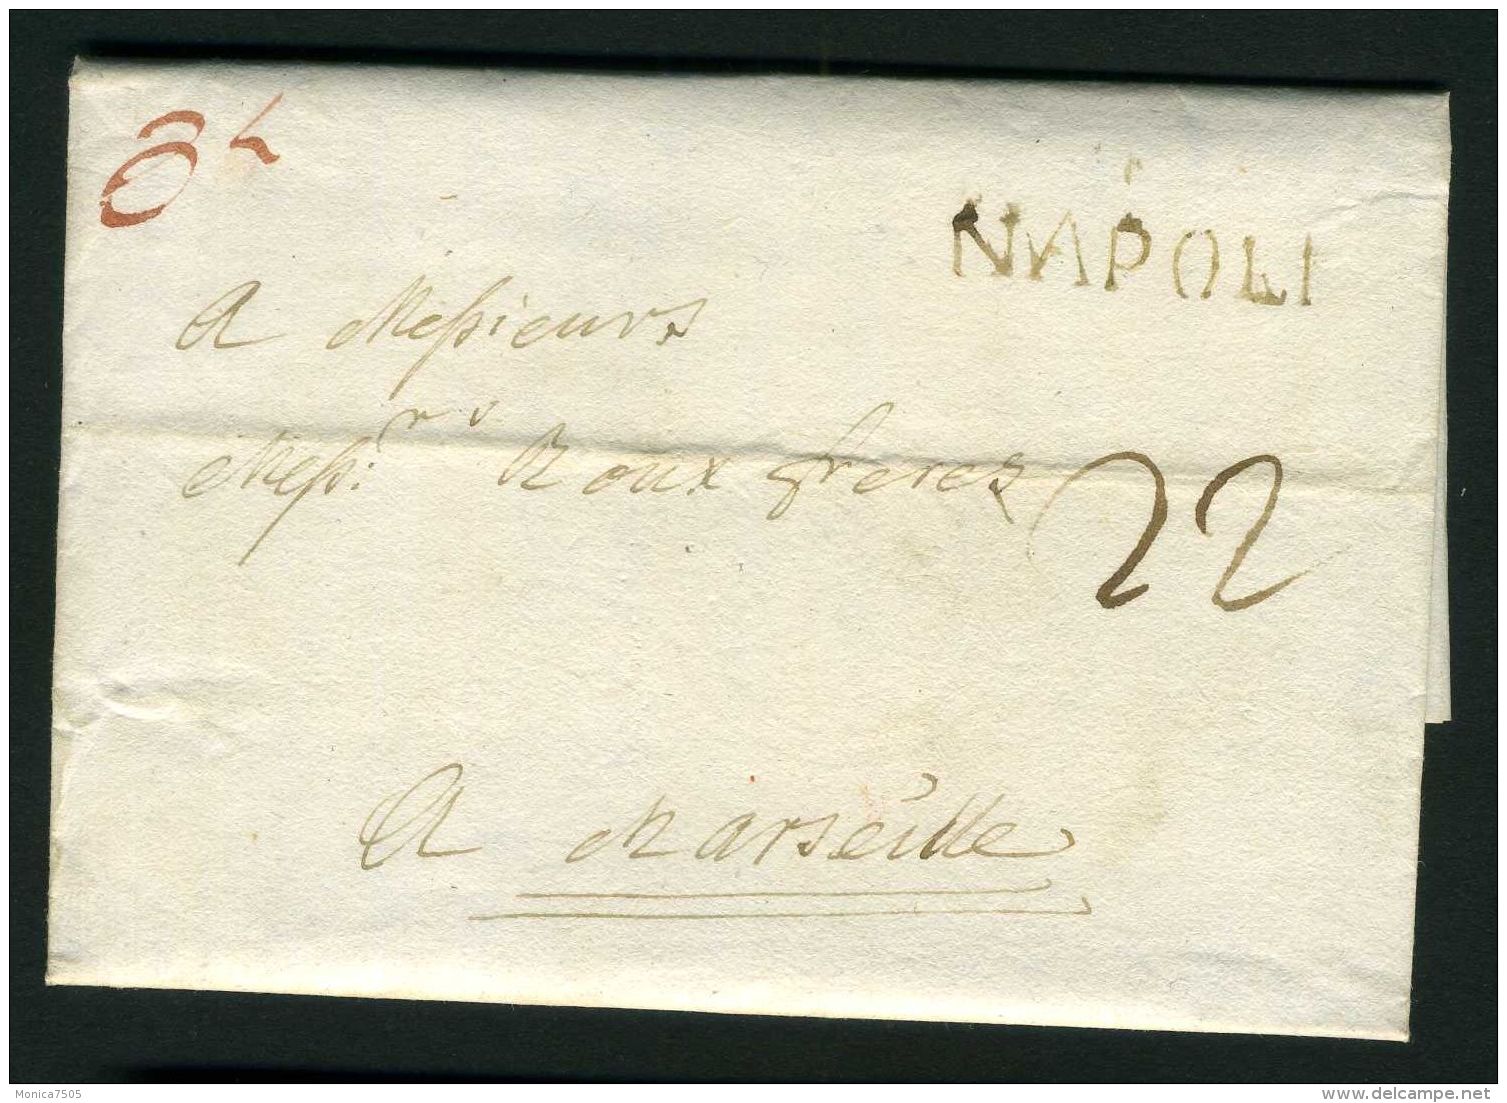 NAPOLI
A Messieurs
Mess.rs Roux freres
22
A Marseille
Monica7505
delcampe.net